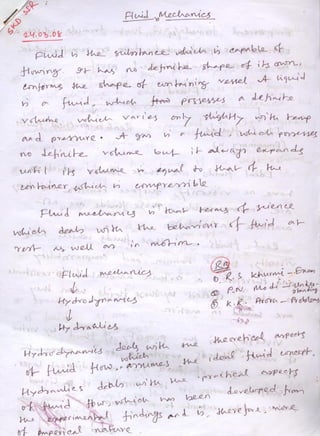 Fluid Mechanics
SKD SIR
24.03.08
Fluid is the substance which is capable of
flowing. It has no definite shape of its own,
conforms the shape of containing vessel. A liquid
is a fluid, which posseses a definite
volume, which varies only slightly with temp
and pressure. A gas is a fluid, which posseses
no definite volume but it always expands
until its volume is equal to that of the
container, which is compressible
Fluid mechanics is that terms of science
which deals with the behaviour of fluid at
rest as well as in motion.
Fluid mechanics
↓
Hydrodynamics
↓
Hydraulics
R.S Khurmi - Exam
P.N. Modi
K.R. - Problems
Hydrodynamics deals with the theoretical aspects
of fluid flow, which assumes the ideal fluid concept.
Hydraulics deals with the practical aspects
of fluid flow, which has been developed from
the experimental findings and is, therefore, more
of emperical nature